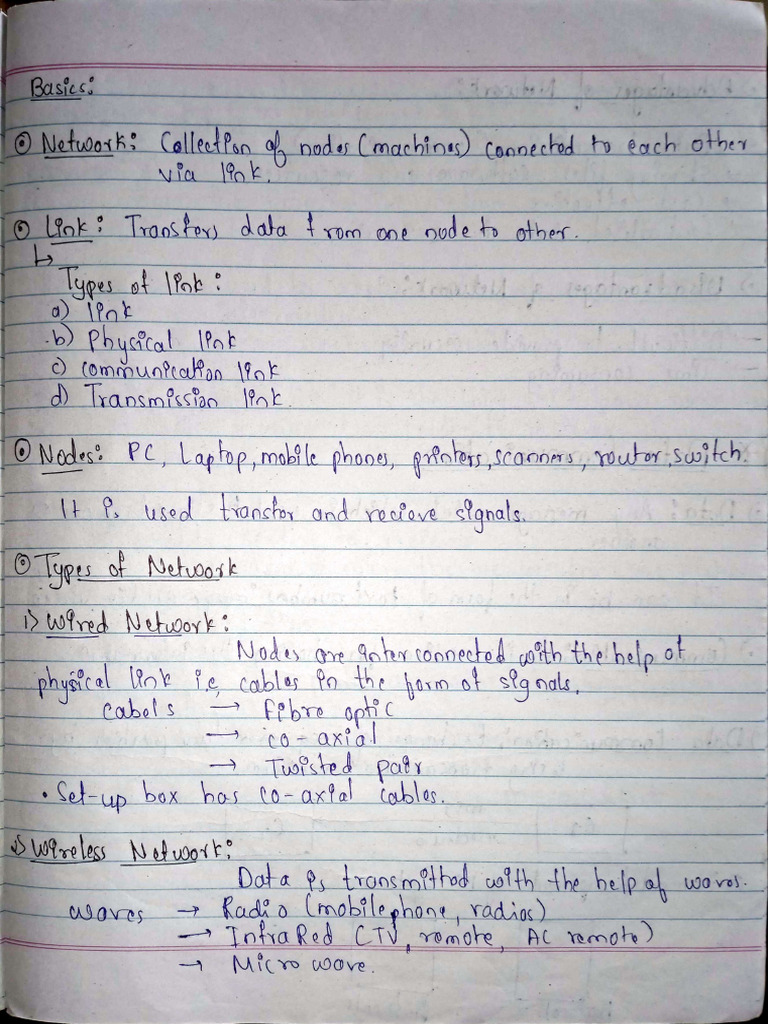 Basics:
Network: Collection of nodes (machines) connected to each other
via link.
Link: Transfers data from one node to other.
Types of link:
a) link
b) Physical link
c) communication link
d) Transmission link.
Nodes: PC, Laptop, mobile phones, printers, scanners, router, switch.
It is used transfer and recieve signals.
Types of Network
i) Wired Network:
Nodes are interconnected with the help of
physical link i.e, cables in the form of signals.
Cabels → Fibre optic
→ co-axial
→ Twisted pair
• Set-up box has co-axial cables.
Wireless Network:
Data is transmitted with the help of waves.
waves → Radio (mobilephone, radios)
→ InfraRed (TV, remote, AC remote)
→ Micro wave.